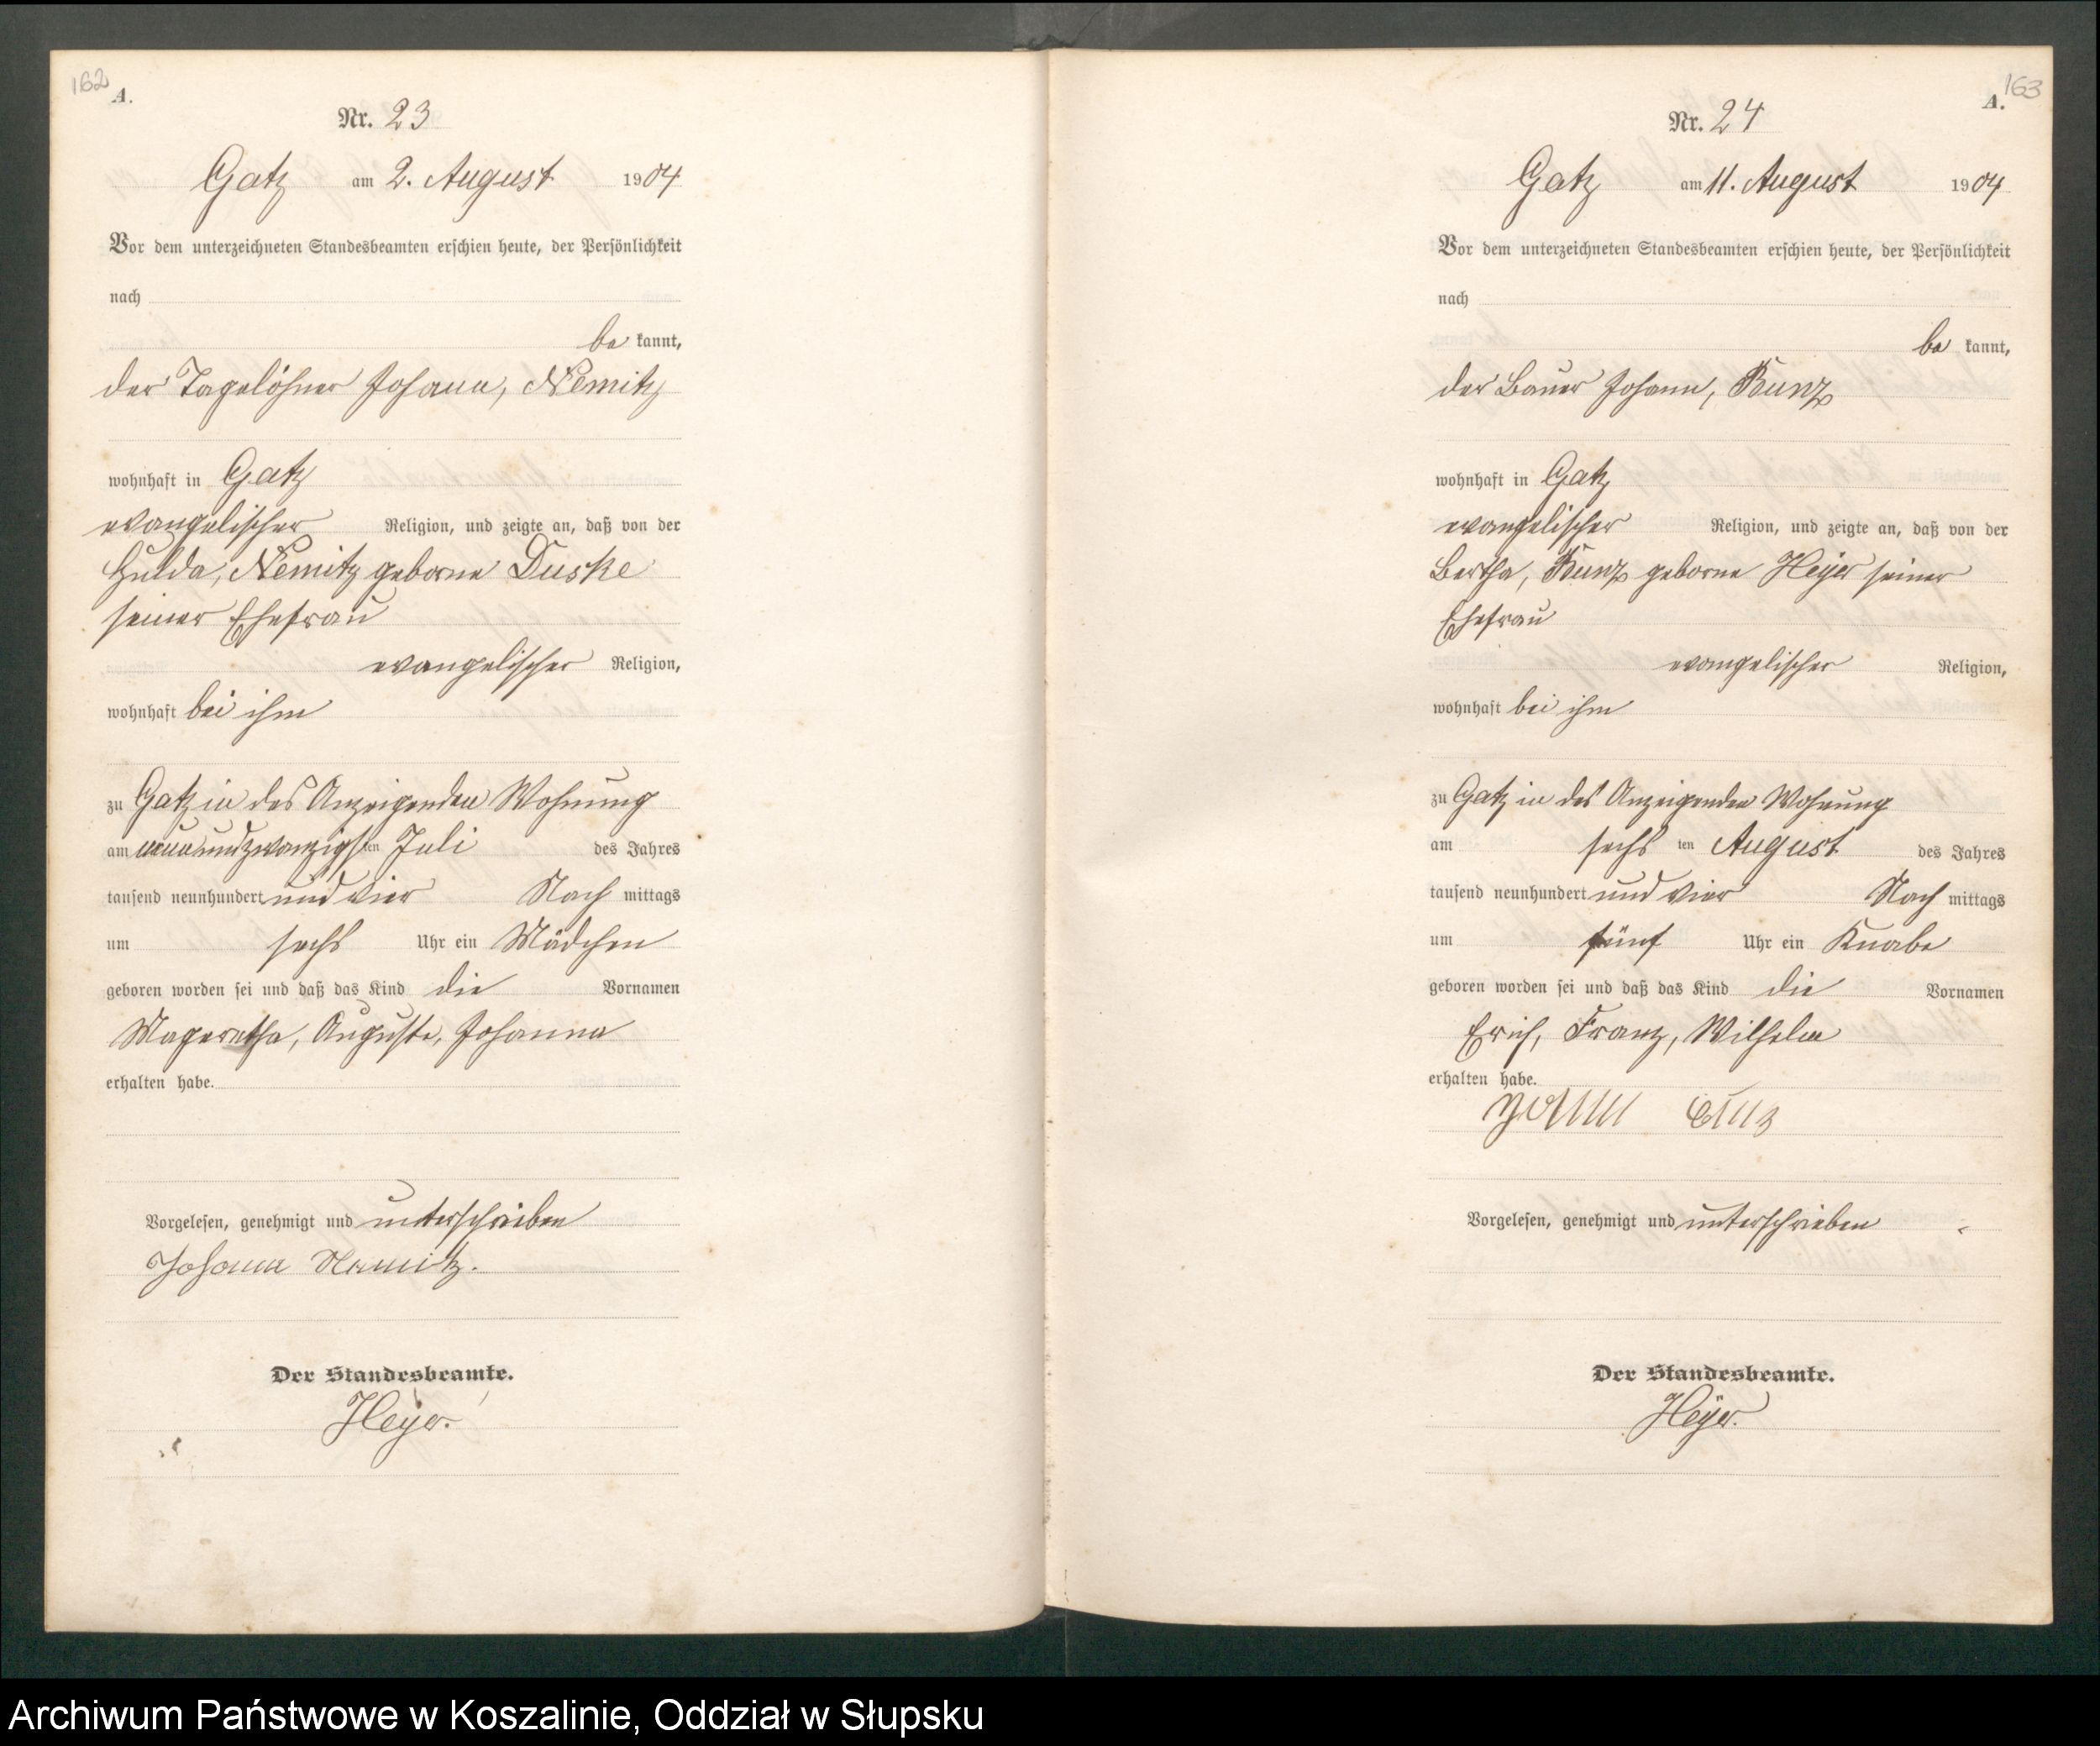 162
A.
Nr. 23
Gatz am 2. August 1904
Vor dem unterzeichneten Standesbeamten erschien heute, der Persönlichkeit
nach
be kannt,
der Tagelöhner Johann, Nemitz
wohnhaft in Gatz
evangelischer Religion, und zeigte an, daß von der
Hulda, Nemitz geborne Duske
seiner Ehefrau
evangelischer Religion,
wohnhaft bei ihm
zu Gatz in des Anzeigenden Wohnung
am neunundzwanzigsten Juli des Jahres
tausend neunhundert und vier Nach mittags
um sechs Uhr ein Mädchen
geboren worden sei und daß das Kind die Vornamen
Mageretha, Auguste, Johanna
erhalten habe.
Vorgelesen, genehmigt und unterschrieben
Johann Nemitz.
Der Standesbeamte.
Heyer.
163
A.
Nr. 24
Gatz am 11. August 1904
Vor dem unterzeichneten Standesbeamten erschien heute, der Persönlichkeit
nach
be kannt,
der Bauer Johann, Kunz
wohnhaft in Gatz
evangelischer Religion, und zeigte an, daß von der
Bertha, Kunz geborne Heÿer seiner
Ehefrau
evangelischer Religion,
wohnhaft bei ihm
zu Gatz in des Anzeigenden Wohnung
am sechs ten August des Jahres
tausend neunhundert und vier Nach mittags
um fünf Uhr ein Knabe
geboren worden sei und daß das Kind die Vornamen
Erich, Franz, Wilhelm
erhalten habe.
Vorgelesen, genehmigt und unterschrieben
Der Standesbeamte.
Heÿer.
Archiwum Państwowe w Koszalinie, Oddział w Słupsku